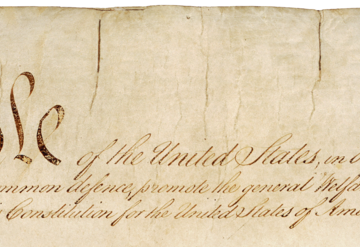 ple of the United States, in O
ommon defence, promote the general Welfa
Constitution for the United States of Ame